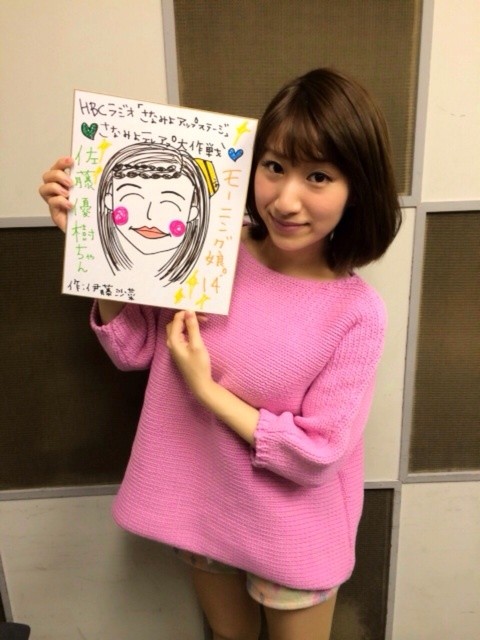 HBCラジオ「さなみよアップステージ」
さなみよ似顔 大作戦
佐藤優樹ちゃん
モーニング娘。'14
作：伊藤沙菜